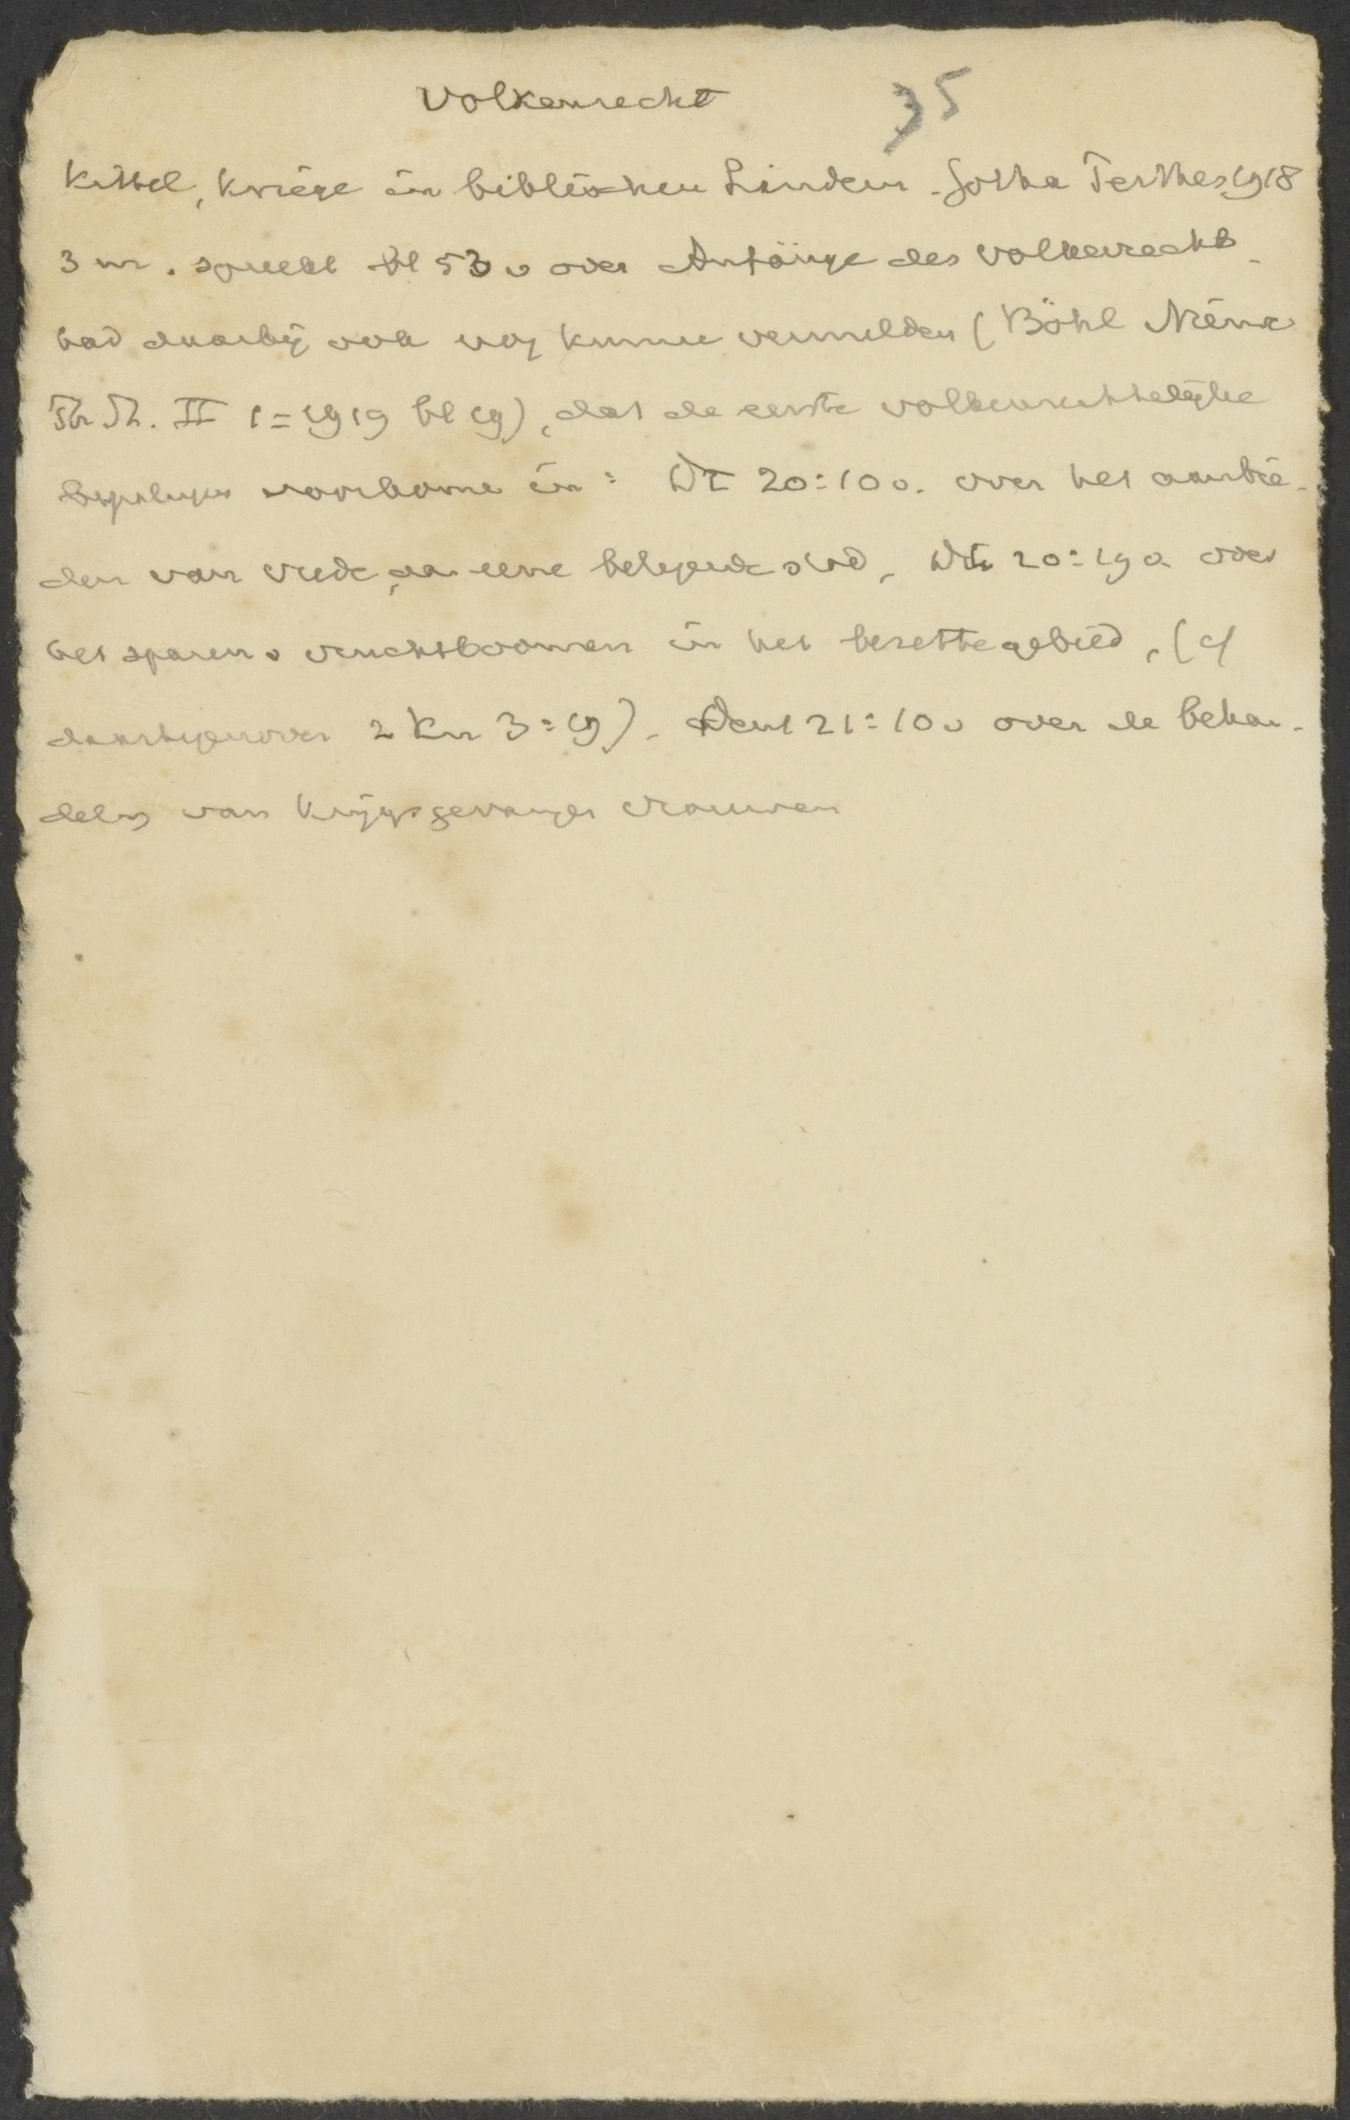 Volkenrecht 35
Kittel, Kriege in biblischen Landen. Gotha Perthes 1918
3 m. spreekt bl 53 v over Anfänge des Volkerrechts.
had daarbij ook nog kunnen vermelden (Böhl Nieuwe
Th. St. II 1 = 1919 bl 19), dat de eerste volkenrechtelijke
bepalingen voorkomen in: Dt 20:10 v. over het aanbie-
den van vrede aan eene belegerde stad, Dt 20:19 v. over
het sparen v vruchtboomen in het bezette gebied, (cf
daartegenover 2 Kon 3:19). Deut 21:10 v over de behan-
deling van krijgsgevangen vrouwen